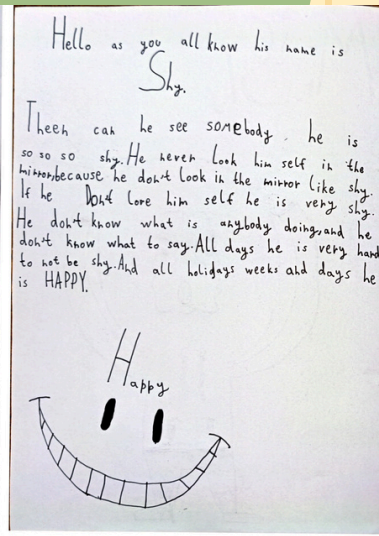 Hello as you all know his name is
Shy.
Theen can he see somebody. he is
so so so shy. He never look him self in the
mirror, because he don't look in the mirror like shy.
If he Don't love him self he is very shy.
He don't know what is anybody doing, and he
don't know what to say. All days he is very hard
to not be shy. And all holidays weeks and days he
is HAPPY.
Happy